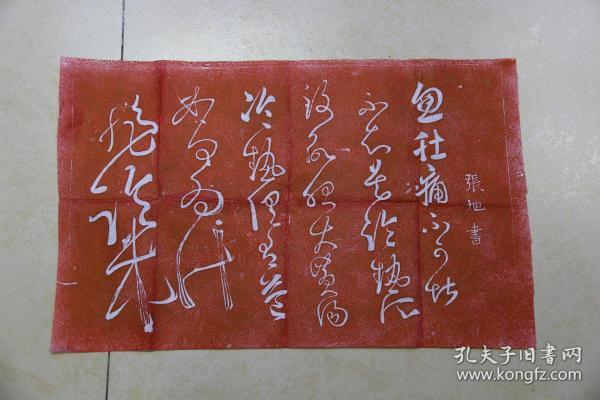 忽肚痛不可堪
張旭書
不知是冷熱所
致欲服大黄湯
冷熱俱有益
如何為計
非臨床
孔夫子旧書网
www.kongfz.com